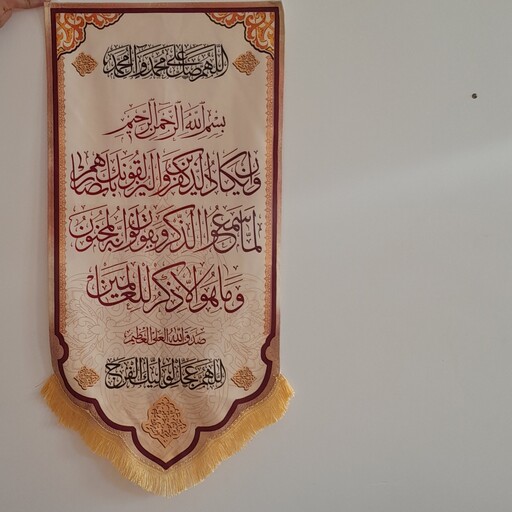 اللهم صل علی محمد وآل محمد
بسم الله الرحمن الرحیم
وإن یکاد الذین کفروا لیزلقونک بأبصارهم
لما سمعوا الذکر ویقولون إنه لمجنون
وما هو إلا ذکر للعالمین
صدق الله العلی العظیم
اللهم عجل لولیک الفرج